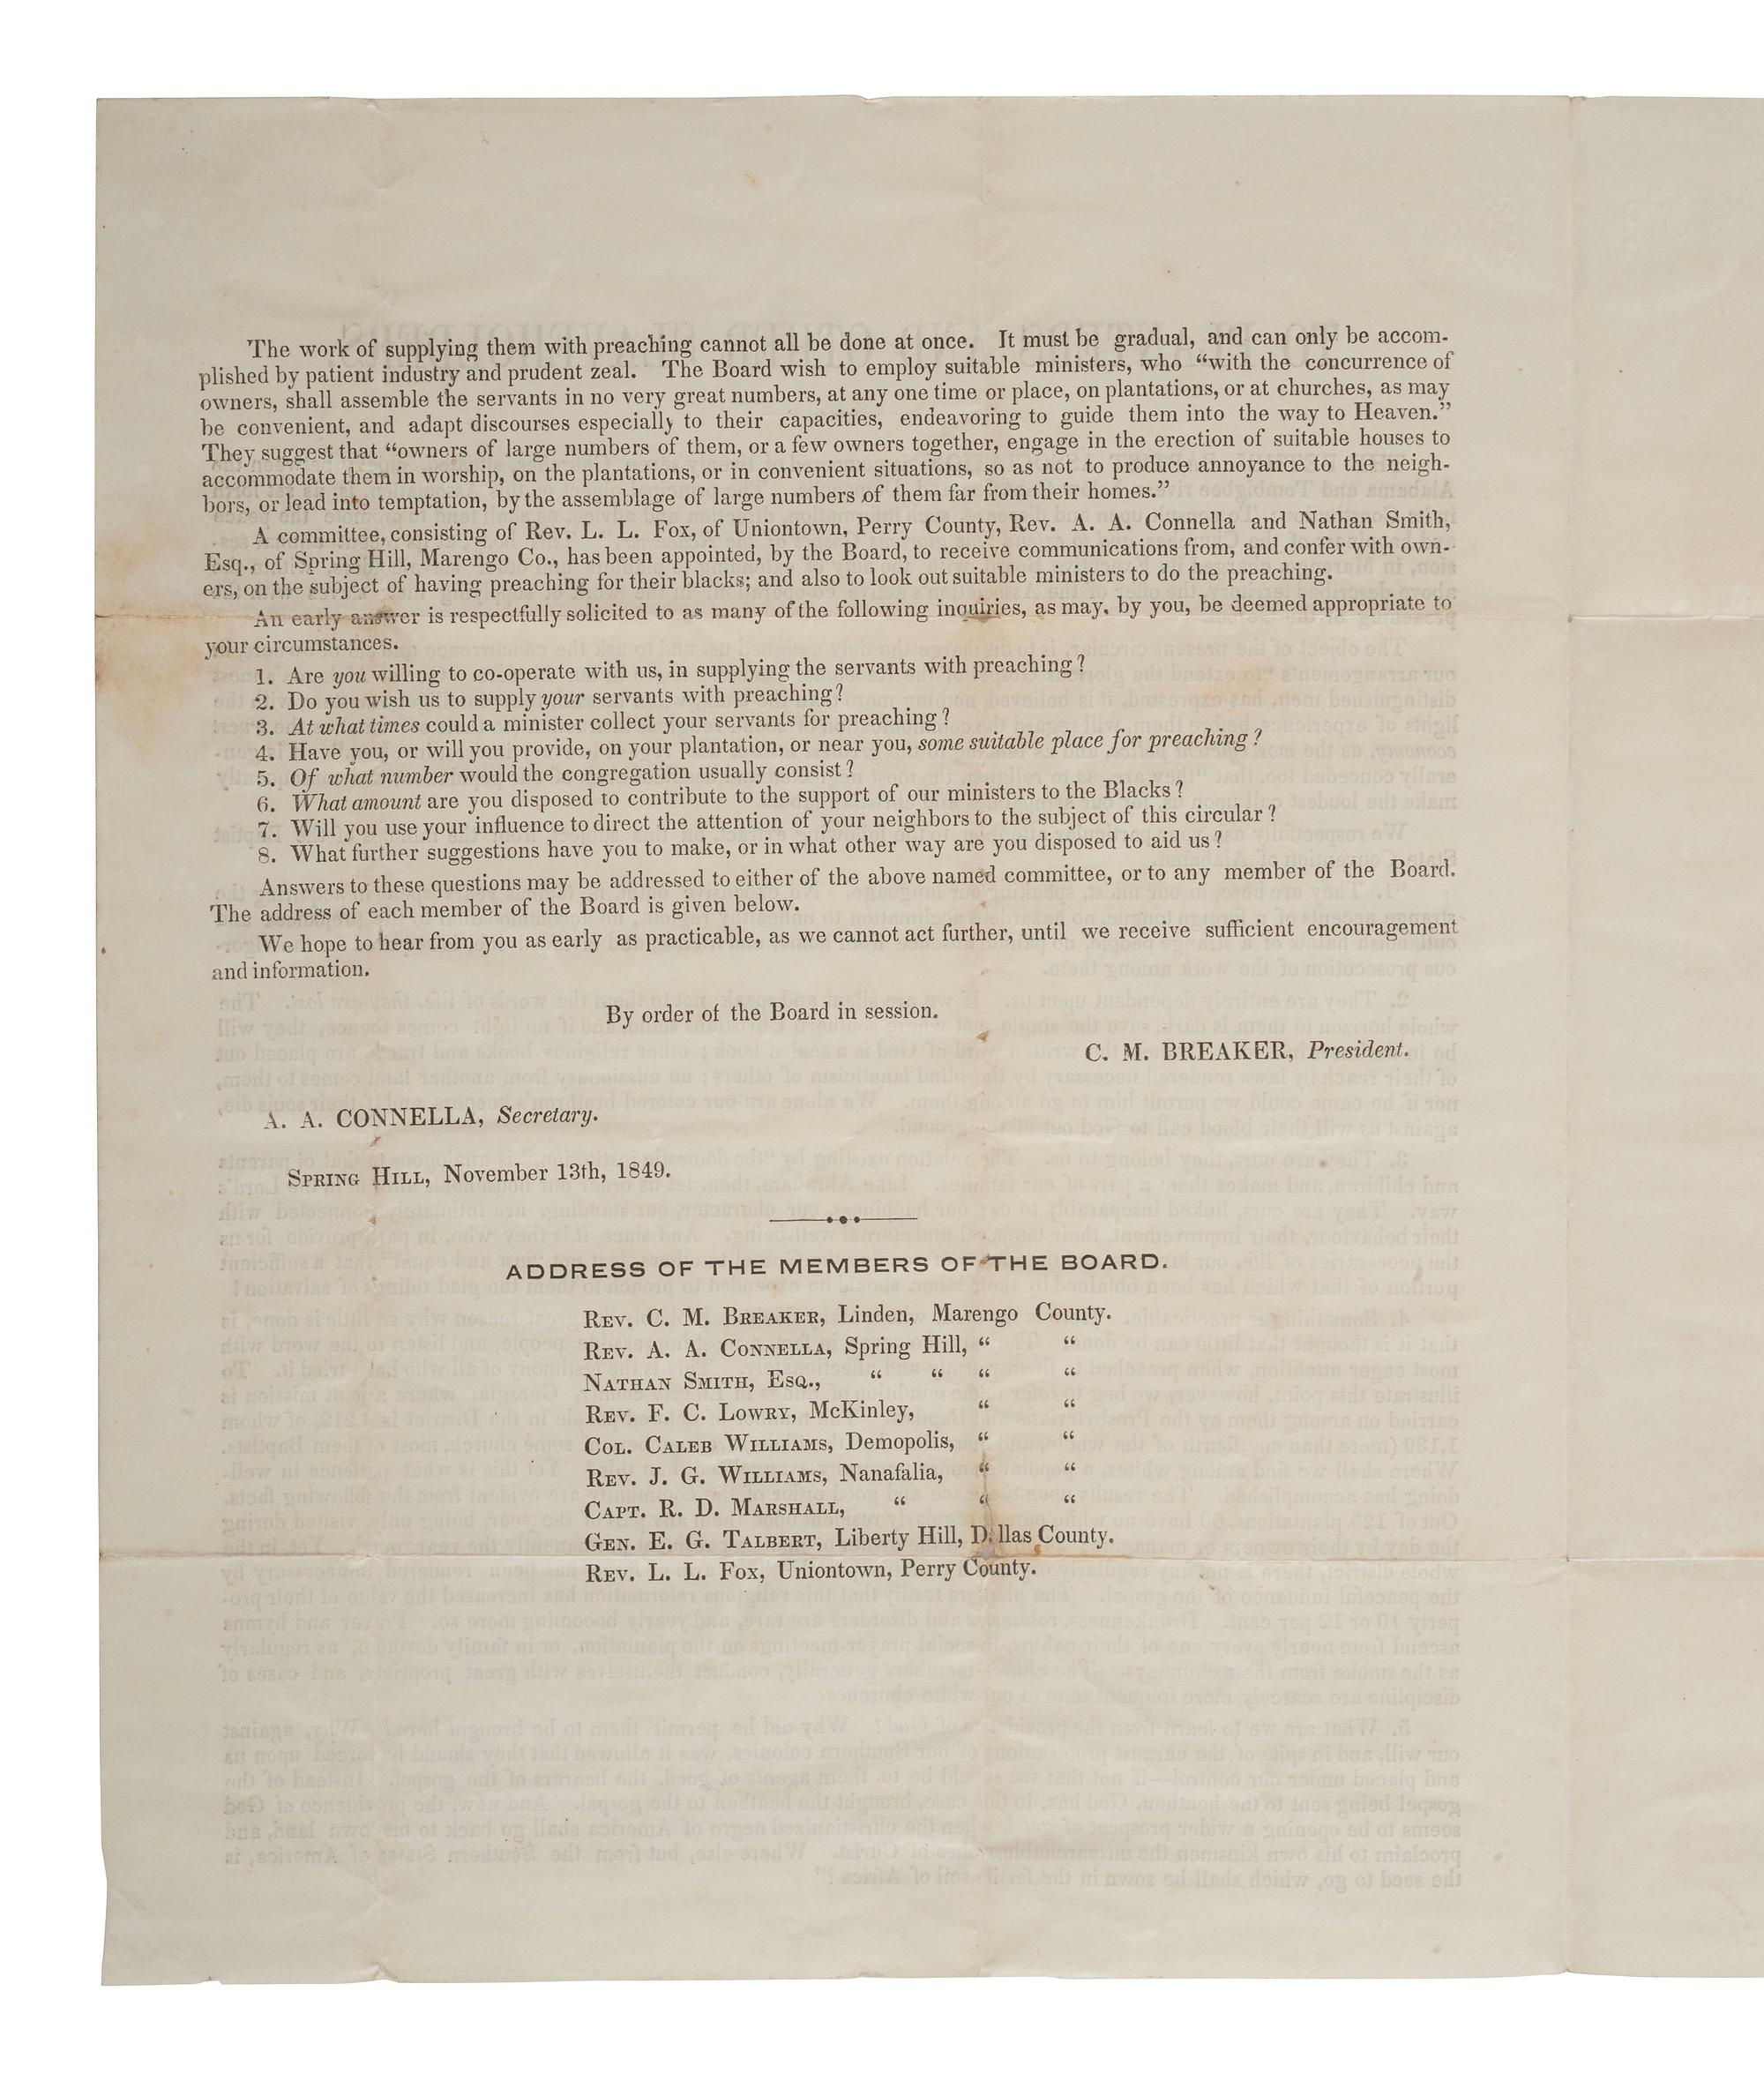 The work of supplying them with preaching cannot all be done at once. It must be gradual, and can only be accom-
plished by patient industry and prudent zeal. The Board wish to employ suitable ministers, who “with the concurrence of
owners, shall assemble the servants in no very great numbers, at any one time or place, on plantations, or at churches, as may
be convenient, and adapt discourses especially to their capacities, endeavoring to guide them into the way to Heaven.”
They suggest that “owners of large numbers of them, or a few owners together, engage in the erection of suitable houses to
accommodate them in worship, on the plantations, or in convenient situations, so as not to produce annoyance to the neigh-
bors, or lead into temptation, by the assemblage of large numbers of them far from their homes.”
A committee, consisting of Rev. L. L. Fox, of Uniontown, Perry County, Rev. A. A. Connella and Nathan Smith,
Esq., of Spring Hill, Marengo Co., has been appointed, by the Board, to receive communications from, and confer with own-
ers, on the subject of having preaching for their blacks; and also to look out suitable ministers to do the preaching.
An early answer is respectfully solicited to as many of the following inquiries, as may, by you, be deemed appropriate to
your circumstances.
1. Are you willing to co-operate with us, in supplying the servants with preaching?
2. Do you wish us to supply your servants with preaching?
3. At what times could a minister collect your servants for preaching?
4. Have you, or will you provide, on your plantation, or near you, some suitable place for preaching?
5. Of what number would the congregation usually consist?
6. What amount are you disposed to contribute to the support of our ministers to the Blacks?
7. Will you use your influence to direct the attention of your neighbors to the subject of this circular?
8. What further suggestions have you to make, or in what other way are you disposed to aid us?
Answers to these questions may be addressed to either of the above named committee, or to any member of the Board.
The address of each member of the Board is given below.
We hope to hear from you as early as practicable, as we cannot act further, until we receive sufficient encouragement
and information.
By order of the Board in session.
C. M. BREAKER, President.
A. A. CONNELLA, Secretary.
SPRING HILL, November 13th, 1849.
ADDRESS OF THE MEMBERS OF THE BOARD.
REV. C. M. BREAKER, Linden, Marengo County.
REV. A. A. CONNELLA, Spring Hill, “ “
NATHAN SMITH, ESQ., “ “ “ “
REV. F. C. LOWRY, McKinley, “ “
COL. CALEB WILLIAMS, Demopolis, “ “
REV. J. G. WILLIAMS, Nanafalia, “ “
CAPT. R. D. MARSHALL, “ “ “
GEN. E. G. TALBERT, Liberty Hill, Dallas County.
REV. L. L. FOX, Uniontown, Perry County.